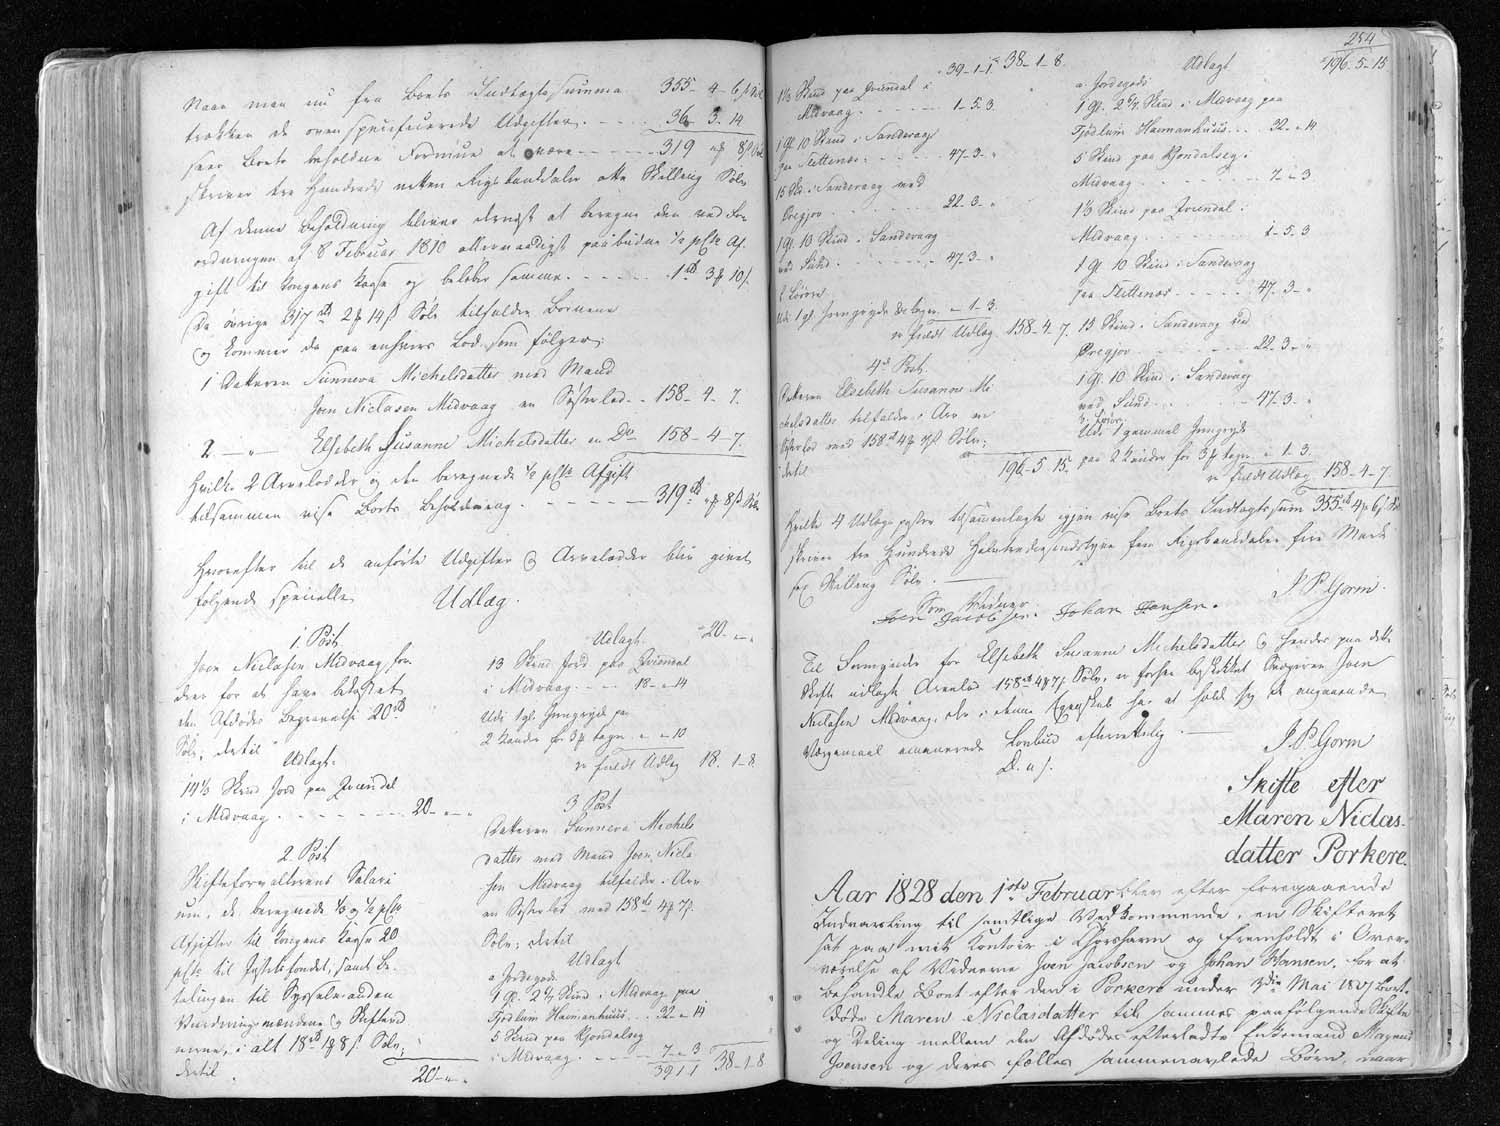 Naar man nu fra Boets Indtægtssumma 355 - 4 - 6 ß Sølv
trækker de oven specificerede Udgifter. - - - - 36 „ 3. 14
sees Boets beholdne Formue at være - - - - - 319 „ 8 ß Sølv
skriver tre Hundrede nitten Rigsbankdaler otte Skilling Sølv
Af denne Beholdning bliver dernæst at beregne den ved For
ordningen af 8 Februar 1810 allernaadigst paabudne ½ pCto Af-
gift til Kongens Kasse og beløber samme. - - - - - 1 rd 3 10 ß.
De øvrige 317 rd 2 14 ß Sølv tilfalder Børnene
og kommer da paa enhvers Lod som følger;
1 Datteren Sunneva Michelsdatter med Mand
Joen Niclasen Midvaag en Søsterlod - - 158 - 4 - 7.
2. - „ - Elsebeth Susanne Michelsdatter en Do 158 - 4 - 7.
Hvilke 2 Arvelodder og den beregnede ½ pCto Afgift
tilsammen vise Boets Beholdning. - - - - - - 319 rd 8 ß Sølv
Hvorefter til de anførte Udgifter og Arvelodder blev givet
følgende specielle Udlæg.
1. Post
Joen Niclasen Midvaag for-
drer for at have bekostet
den Afdødes Begravelse 20 rd
Sølv, dertil
Udlagt.
14⅓ Skind Jord paa Qvændal
i Midvaag. - - - - - - - 20 - „ - „
2. Post
Skifteforvalterens Salari
um, de beregnede ⅙ og ½ pCto
Afgifter til Kongens Kasse 20
pCto til Justitsfondet, samt Be-
talingen til Sysselmanden
Vurdningsmændene og Skiftevid
nerne, i alt 18 rd 1 8 ß. Sølv;
dertil 20 - „ - „
Udlagt. 20 - „ - „
13 Skind Jord paa Qvændal
i Midvaag. - - - - 18 - „ 14
Udi 1 gl. Hengryde paa
2 Kander for 3 tagen. „ - „ 10
er fuldt Udlæg 18. 1 - 8.
3 Post
Datteren Sunneva Michels
datter med Mand Joen Nicla-
sen Midvaag tilfalder i Arv
en Søsterlod med 158 rd 4 7 ß.
Sølv; dertil
Udlagt
a. Jordegods
1 Gl. 2⅔ Skind i Midvaag paa
Fjødlum Heimanhuus - - 32 - „ 14
5 Skind paa Kjondalseg
i Midvaag. - - - - - 7 - „ 3
39 1 1 38 - 1 - 8
254
39 - 1 - 1 38 - 1 - 8.
1⅓ Skind paa Qvændal i
Midvaag. - - - - - 1 - 5. 3
1 gl 10 Skind i Sandevaag
paa Flettenæs. - - - - 47 - 3 - „
15 Skd. i Sandevaag ved
Øregjov - - - - - 22 - 3 - „
1 gl. 10 Skind i Sandevaag
ved Sund. - - - - - 47 - 3 - „
b Løsøre
Udi 1 gl Hengryde tagen - „ - 1 - 3.
er fuldt Udlæg 158 - 4 - 7.
4de Post.
Datteren Elsebeth Susanne Mi
chelsdatter tilfalder i Arv en
Søsterlod med 158 rd 4 7 ß Sølv;
dertil 196 - 5 - 15.
Udlagt 196 - 5 - 15
a. Jordegods
1 gl. 2⅔ Skind i Midvaag paa
Fjødlum Heimanhuus - - - 32 - „ 14
5 Skind paa Kjondalseg i
Midvaag - - - - - 7 - „ 3
1⅓ Skind paa Qvændal i
Midvaag. - - - - - 1 - 5 - 3
1 gl 10 Skind i Sandevaag
paa Flettenæs - - - - - 47 - 3 - „
15 Skind i Sandevaag ved
Øregjov - - - - - 22 - 3 - „
1 gl. 10 Skind i Sandevaag
ved Sund. - - - - - 47 - 3 - „
b. Løsøre
Udi 1 gammel Hengryde
paa 2 Kander for 3 tagen „ 1 - 3.
er fuldt Udlæg 158 - 4 - 7
Hvilke 4 Udlægsposter tilsammenlagte igjen vise Boets Indtægtssum 355 rd 4 6 ß Sølv
skriver tre Hundrede Halvtredsindstyve fem Rigsbankdaler fire Mark
sex Skilling Sølv.
J. P. Gorm.
Som Vidner
Joen Jacobsen. Johan Hansen.
Til Formynder for Elsebeth Susanne Michelsdatter og hendes paa dette
Skifte udlagte Arvelod 158 rd 4 7 ß. Sølv, er forhen beskikket Svogeren Joen
Niclasen Midvaag, der i denne Egenskab har at holde sig de angaaende
Værgemaal emanerede Lovbud efterrettelig.
D. u. s. J. P. Gorm
Skifte efter
Maren Niclas-
datter Porkere.
Aar 1828 den 1ste Februar blev efter foregaaende
Indvarsling til samtlige Vedkommende, en Skifteret
sat paa mit Kontoir i Thorshavn og fremholdt i Over-
værelse af Vidnerne Joen Jacobsen og Johan Hansen, for at
behandle Boet efter den i Porkere under 3die Mai 1827 bort-
døde Maren Niclasdatter til sammes paafølgende Skifte
og Deling mellem den Afdødes efterladte Enkemand Magnus
Joensen og deres fælles sammenavlede Børn, naar